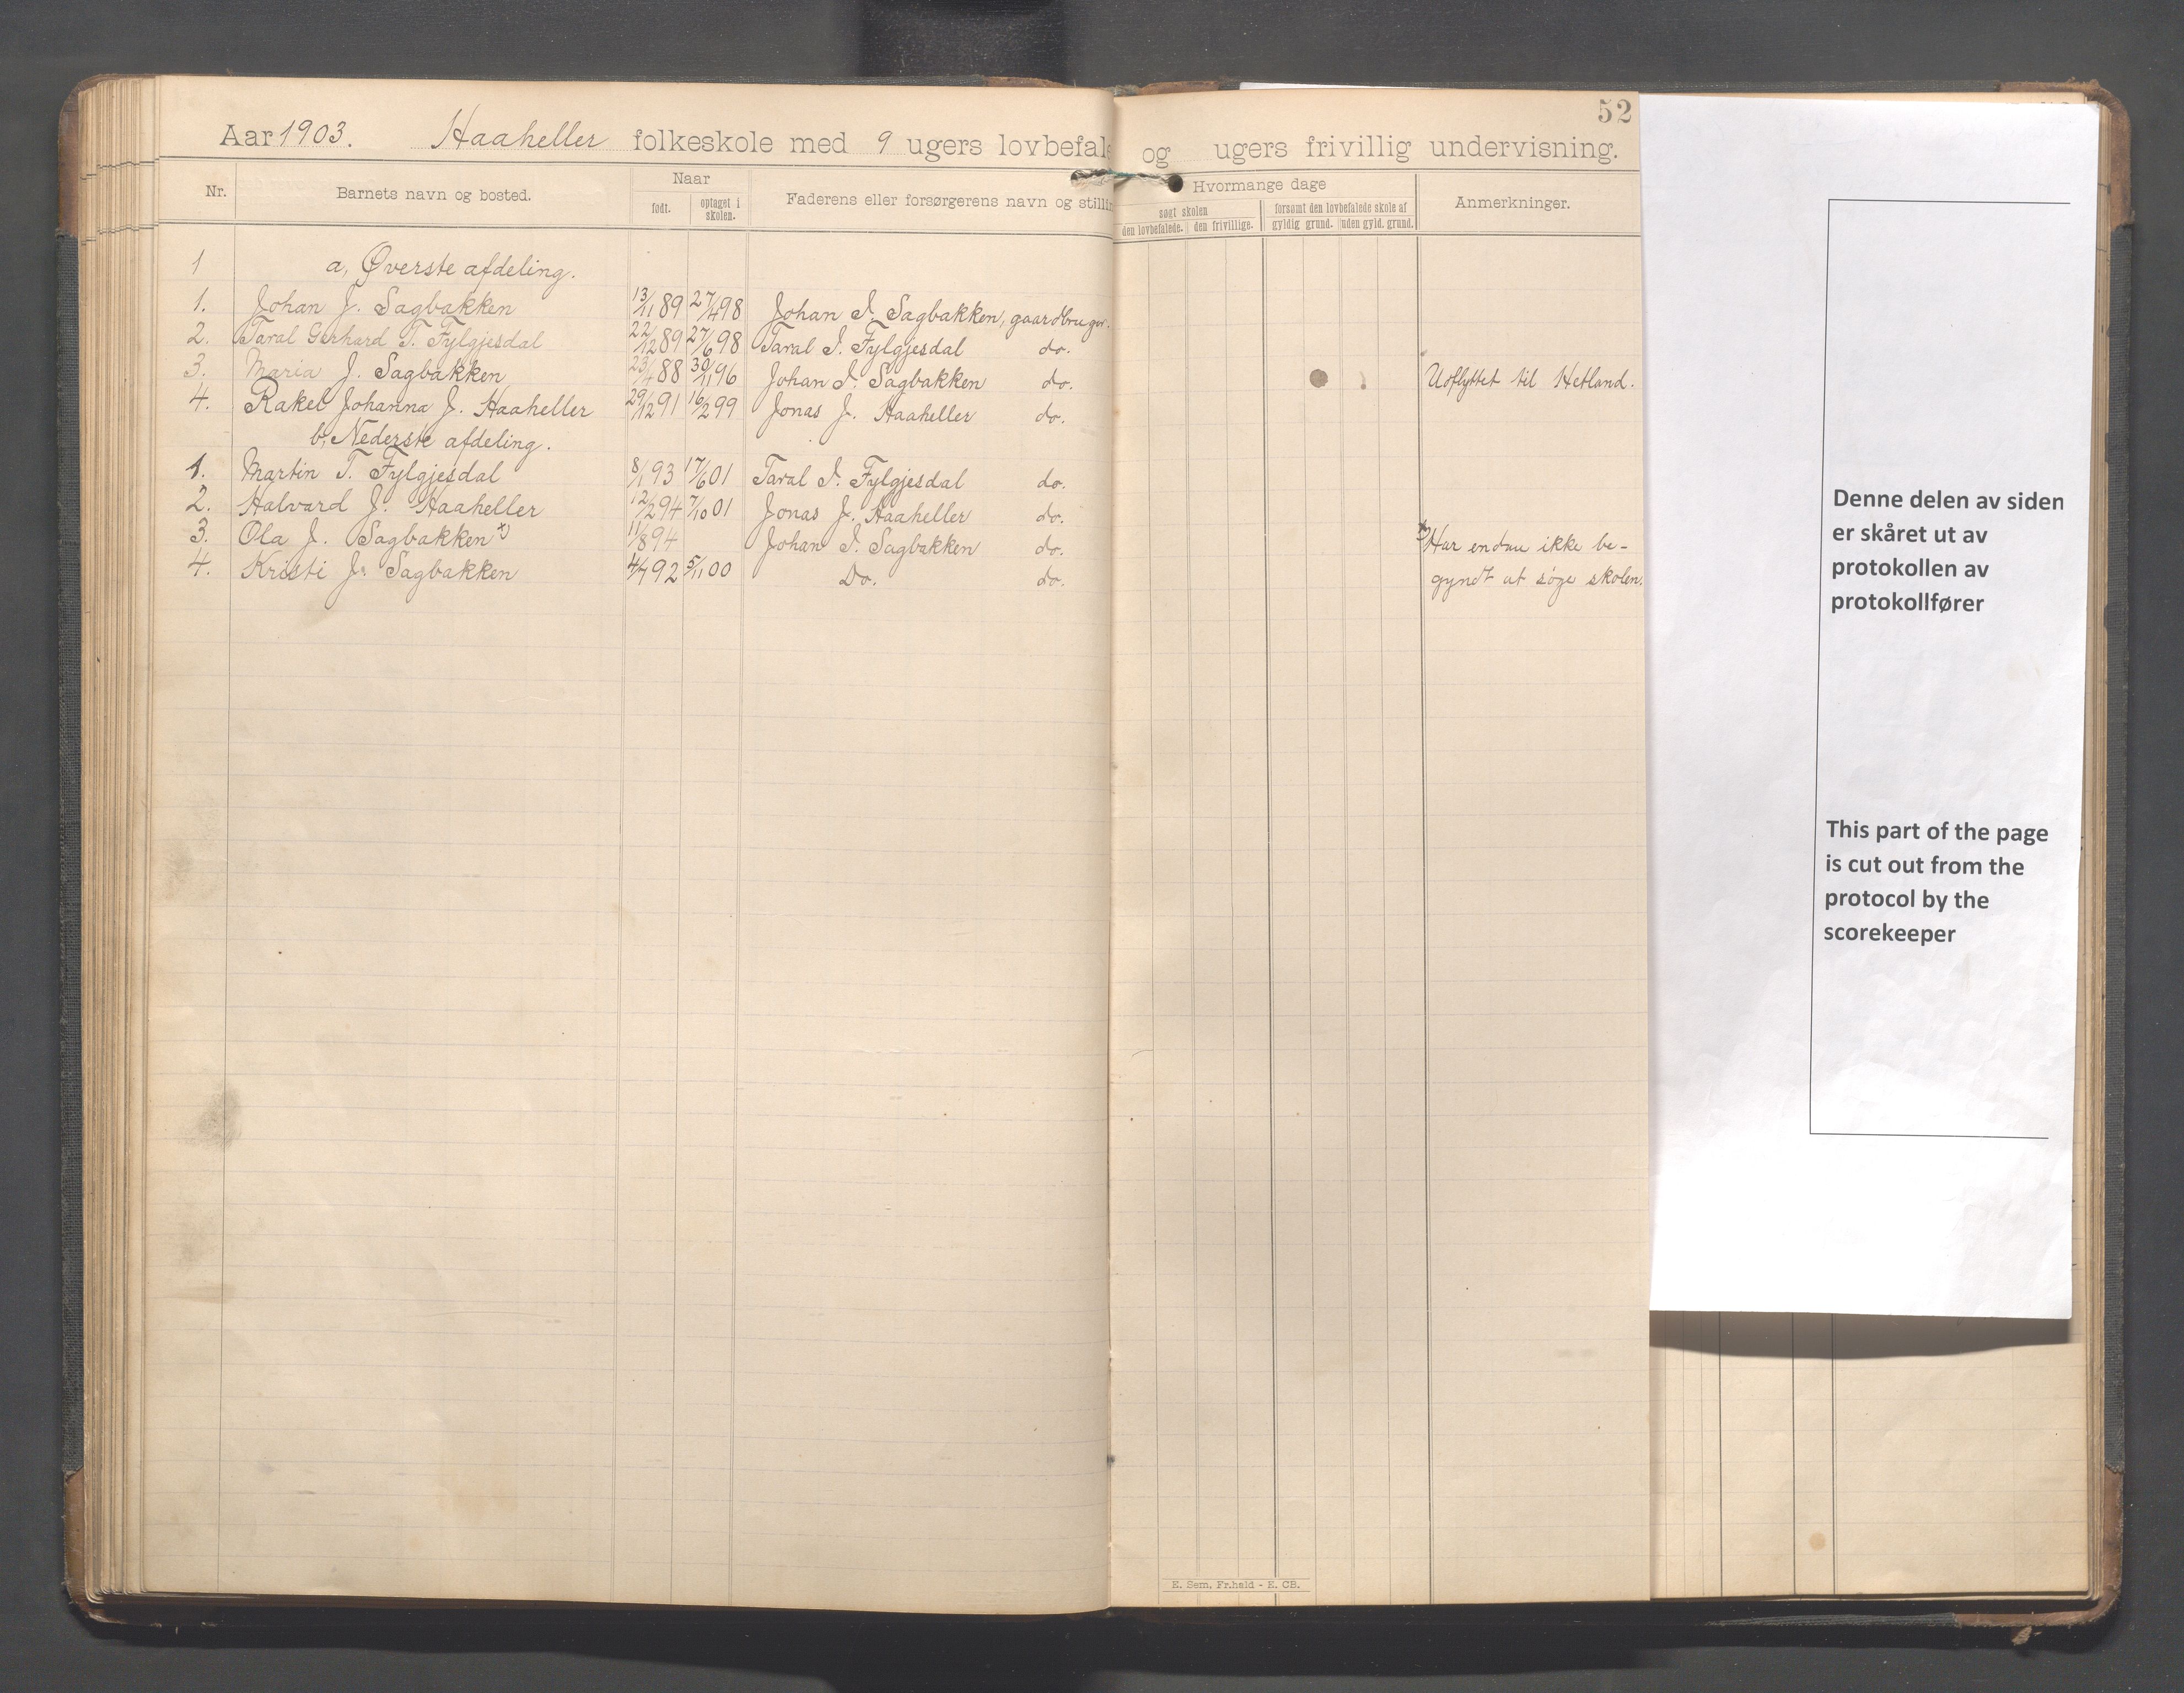 52
Aar 1903. Haaheller folkeskole med 9 ugers lovbefale og ugers frivillig undervisning.
Nr. Barnets navn og bosted. Naar født. optaget i skolen. Faderens eller forsørgerens navn og stillin Hvormange dage søgt skolen den lovbefalede. den frivillige. forsømt den lovbefalede skole af gyldig grund. uden gyld. grund. Anmerkninger.
1 a, Øverste afdeling.
1. Johan J. Sagbakken 13/11 89 27/4 98 Johan I. Sagbakken, gaardbruger.
2. Taral Gerhard T. Fylgjesdal 22/12 89 27/6 98 Taral I. Fylgjesdal do.
3. Maria J. Sagbakken 23/4 88 30/11 96 Johan I. Sagbakken do. Udflyttet til Hetland.
4. Rakel Johanna J. Haaheller 29/12 91 16/2 99 Jonas J. Haaheller do.
b, Nederste afdeling.
1. Martin T. Fylgjesdal 8/1 93 17/6 01 Taral I. Fylgjesdal do.
2. Halvard J. Haaheller 12/2 94 7/10 01 Jonas J. Haaheller do.
3. Ola J. Sagbakken x) 11/8 94 Johan I. Sagbakken do. x) Har endnu ikke be-
4. Kristi J. Sagbakken 4/7 92 5/11 00 Do. do. gyndt at søge skolen.
E. Sem, Fr.hald - E. CB.
Denne delen av siden
er skåret ut av
protokollen av
protokollfører
This part of the page
is cut out from the
protocol by the
scorekeeper